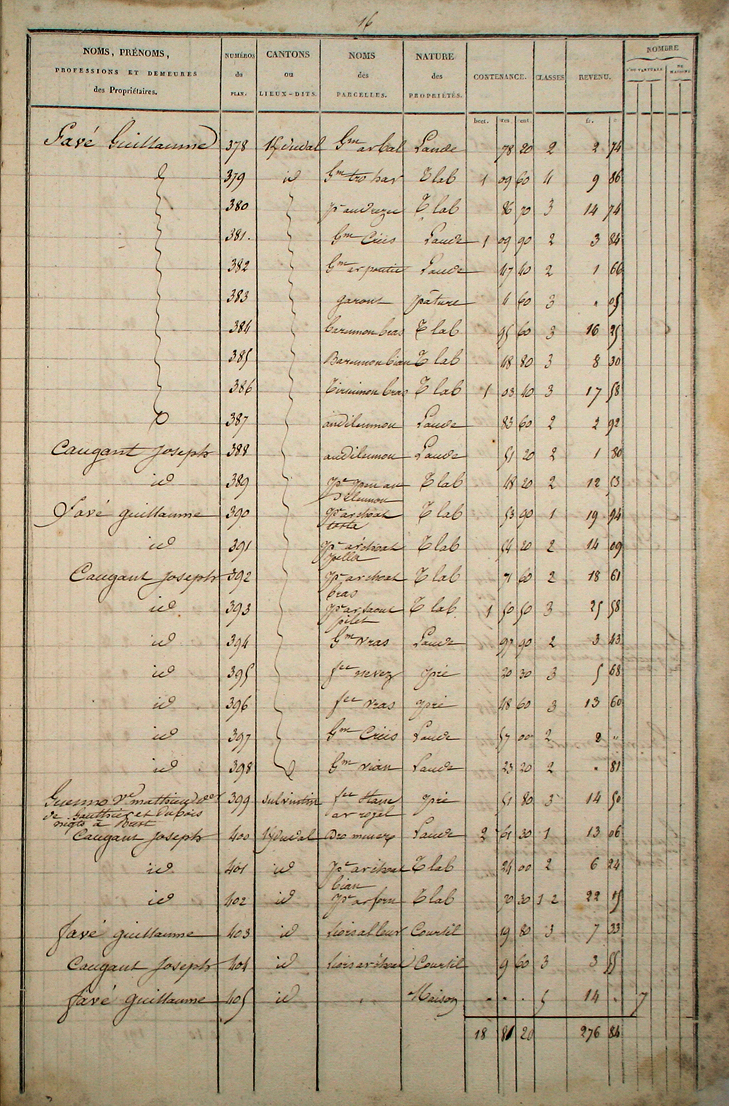 16
NOMS, PRÉNOMS, PROFESSIONS ET DEMEURES des Propriétaires. NUMÉROS du PLAN. CANTONS ou LIEUX-DITS. NOMS des PARCELLES. NATURE des PROPRIÉTÉS. CONTENANCE. CLASSES REVENU. NOMBRE
hect. ares cent. fr. c.
Favé Guillaume 378 Gm ar bal Lande 78 20 2 2 74
379 id Gm tro har T lab 1 09 60 4 9 86
380 T lab 86 70 3 14 74
381. Gm Creis Lande 1 09 90 2 3 84
382 Gm ar poutic Lande 47 40 2 1 66
383 garont pâture 4 60 3 . 05
384 berumon bras T lab 95 60 3 16 25
385 Berumon bian T lab 48 80 3 8 30
386 bras T lab 1 03 40 3 17 58
387 andilumou Lande 83 60 2 2 92
Caugant Joseph 388 andilumou Lande 51 20 2 1 80
id 389 T lab 48 20 2 12 53
Favé guillaume 390 pc archoat tosta T lab 53 90 1 19 94
id 391 pc archoat pella T lab 54 20 2 14 09
Caugant Joseph 392 pc archoat bras T lab 71 60 2 18 61
id 393 T lab 1 50 50 3 25 58
id 394 Gm vras Lande 97 90 2 3 43
id 395 fec nevez pré 20 30 3 5 68
id 396 fec vras pré 48 60 3 13 60
id 397 Gm Creis Lande 57 00 2 2 "
id 398 Gm vian Lande 23 20 2 . 81
Guermo Ve mathieu 399 Sulvintin pré 51 80 3 14 50
de Gauthier et Dubois
négts à Brest
Caugant Joseph 400 Lande 2 61 30 1 13 06
id 401 id pc archoat bian T lab 24 00 2 6 24
id 402 id pc ar forn T lab 70 30 1-2 22 15
favé guillaume 403 id Courtil 19 80 3 7 33
Caugant Joseph 404 id Courtil 9 60 3 3 55
favé Guillaume 405 id . . Maison . . . 5 14 . 7
18 81 20 276 84